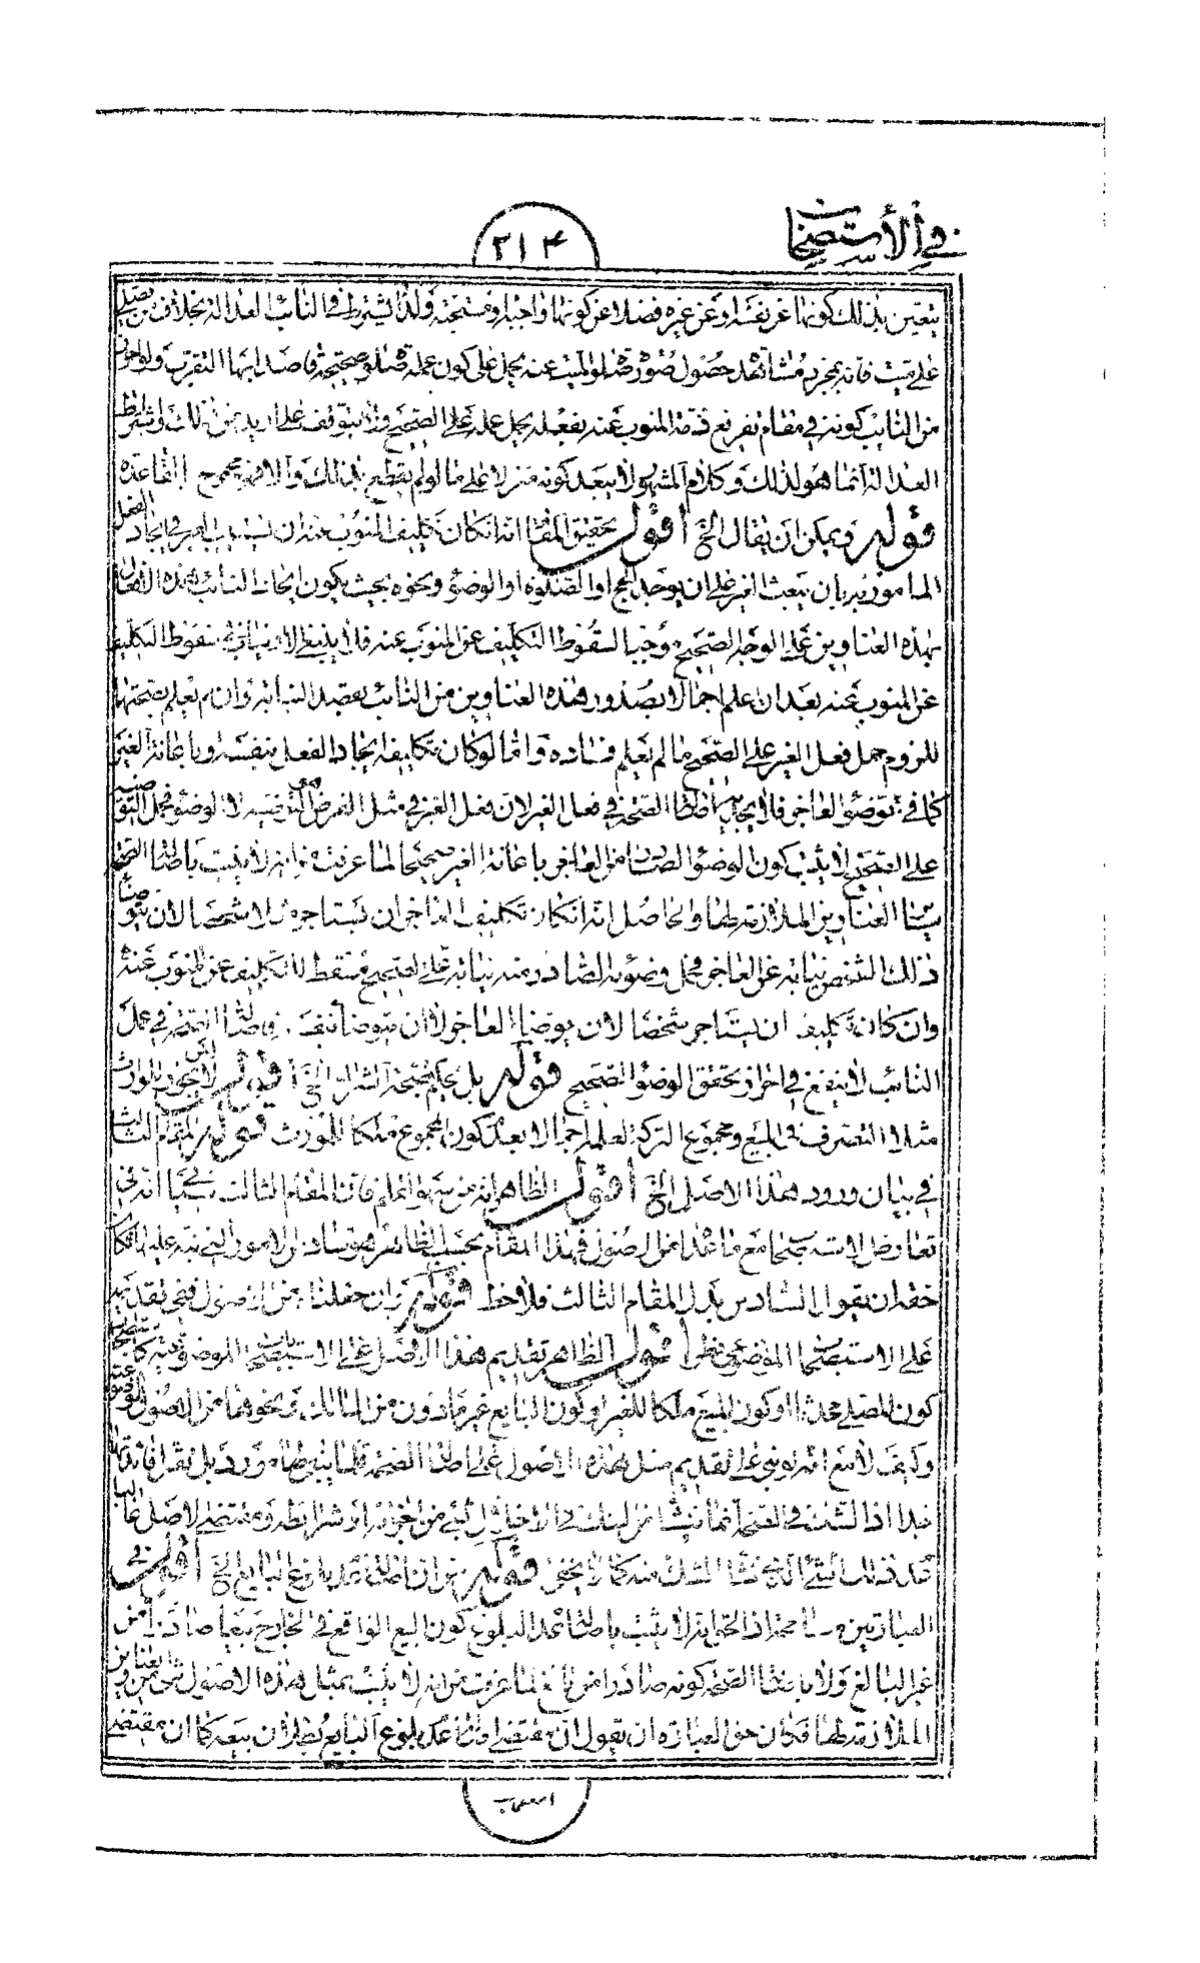 في الاستصحاب
٢١٤
يتعين بذلك كونها عن نفسه او عن غيره فضلا عن كونها واجبة او مستحبة ولذا يشترط في النائب العدالة بخلاف من صلى
على ميت فانه بمجرد مشاهدة حصول صورة صلوة الميت عنه يحمل على كون عمله صلوة صحيحة قاصدا بها التقرب ولو احرز
من النائب كونه في مقام تفريغ ذمة المنوب عنه بفعله يحمل عمله على الصحيح ولا يتوقف على ازيد من ذلك واشتراط
العدالة انما هو لذلك وكلام المشهور لا يبعد كونه منزلا على ما لو لم يقطع بذلك والا فهو محجوج القاعدة
قوله ويمكن ان يقال الخ اقول تحقيق المقام انه ان كان تكليف المنوب عنه ان يتسبب الغير في ايجاد الفعل
المامور به بان يبعث الغير على ان يوجد الحج او الصلوة او الوضوء ونحوه بحيث يكون ايجاد النائب لهذه الافعال
بهذه العناوين على الوجه الصحيح موجبا لسقوط التكليف عن المنوب عنه فلا ينبغي الارتياب في سقوط التكليف
عن المنوب عنه بعد ان علم اجمالا بصدور هذه العناوين من النائب بقصد النيابة وان لم يعلم بصحتها
للزوم حمل فعل الغير على الصحيح ما لم يعلم فساده واما لو كان تكليفه ايجاد الفعل بنفسه وباعانة الغير
كما في توضؤ العاجز فلا يجديه اصالة الصحة في فعل الغير لان فعل الغير في مثل الفرض هي التوضية لا الوضوء فحمل التوضية
على الصحيح لا يثبت كون الوضوء الصادر من العاجز باعانة الغير صحيحا لما عرفت من انه لا يثبت باصالة الصحة
سائر العناوين الملازمة لها والحاصل انه ان كان تكليف العاجز ان يستاجر مثلا شخصا لان يتوضأ
ذلك الشخص نيابة عن العاجز فحمل وضوئه الصادر منه نيابة على الصحيح مسقط للتكليف عن المنوب عنه
وان كان تكليفه ان يستاجر شخصا لان يوضأ العاجز لا ان يتوضأ بنفسه فاصالة الصحة في عمل
النائب لا ينفع في احراز تحقق الوضوء الصحيح قوله بل يحكم بصحة الشراء الخ اقول لكن لا يجوز للوارث
مثلا التصرف في المبيع ومجموع التركة للعلم اجمالا بعدم كون المجموع ملكا للمورث قوله المقام الثالث
في بيان ورود هذا الاصل الخ اقول الظاهر انه من سهو القلم فان المقام الثالث بحسب الترتيب في
تعارض الاستصحاب مع ما عداه من الاصول فهذا المقام بحسب الظاهر هو سادس الامور التي نبه عليها فكان
حقه ان يقول السادس بدل المقام الثالث فلاحظ قوله وان جعلناه من الاصول ففي تقديمه
على الاستصحاب الموضوعي نظر اقول الظاهر تقديم هذا الاصل على الاستصحابات الموضوعية كاستصحاب
كون المصلي محدثا او كون المبيع ملكا للغير او كون البايع غير ماذون من المالك ونحوهما من الاصول الموضوعية
وكيف لا مع انه لو بني على تقديم مثل هذه الاصول على اصالة الصحة قلما يبقى لها مورد بل تقل فائدتها
جدا اذ الشك في الصحة انما ينشأ من الشك في الاخلال بشئ من اجزائه او شرائطه ومقتضى الاصل غالبا
عدم ذلك الشئ الذي نشأ الشك منه كما لا يخفى قوله من ان اصالة عدم بلوغ البايع الخ اقول في
العبارتين مسامحة اذ الحق انه لا يثبت باصالة عدم البلوغ كون البيع الواقع في الخارج بيعا صادرا من
غير البالغ ولا باصالة الصحة كونه صادرا من بالغ لما عرفت من انه لا يثبت بمثل هذه الاصول شئ من العناوين
الملازمة لها فكان حق العبارة ان يقول ان مقتضى اصالة عدم بلوغ البايع بطلان بيعه كما ان مقتضى
استصحاب